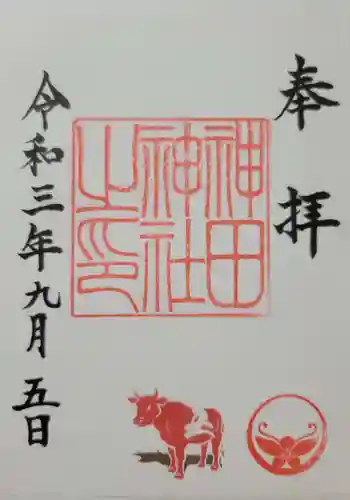 奉拝
神田
神社
之印
令和三年九月五日